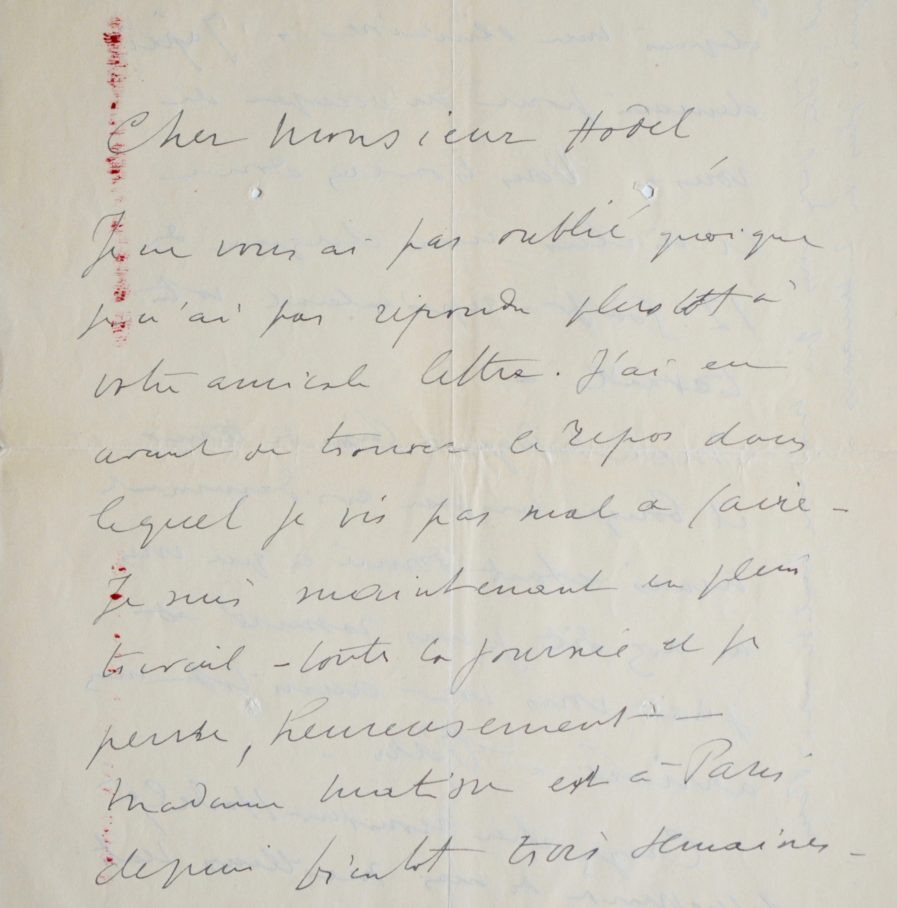 Cher Monsieur Hodel
Je ne vous ai pas oublié quoique
je n'ai pas répondu plus tôt à
votre amicale lettre. J'ai eu
avant de trouver le repos dans
lequel je vis pas mal à faire -
Je suis maintenant en plein
travail - toute la journée et je
pense, heureusement -
Madame Matisse est à Paris
depuis bientôt trois semaines -